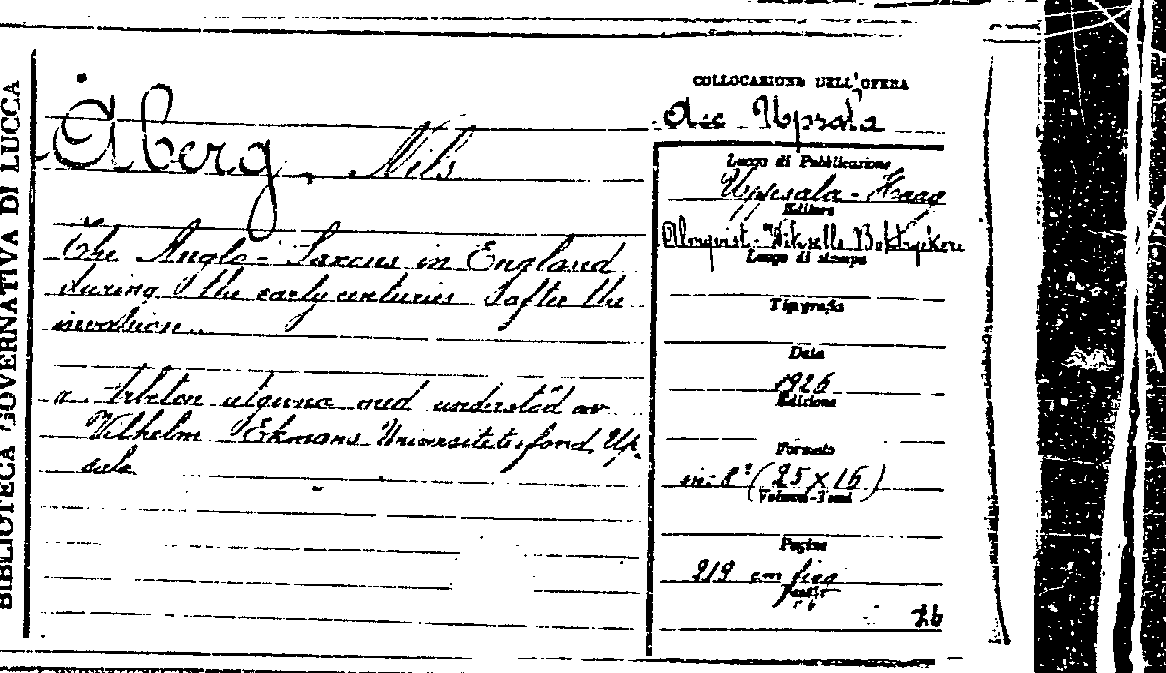 BIBLIOTECA GOVERNATIVA DI LUCCA
Åberg, Nils
The Anglo-Saxons in England
during the early centuries after the
invasion.
Arbeten utgivna med understöd av
Vilhelm Ekmans Universitetsfond, Up-
sala
COLLOCAZIONE DELL'OPERA
Acc Upsala
Luogo di Pubblicazione
Uppsala - Haag
Editore
Almqvist - Wiksells Boktryckeri
Luogo di stampa
Tipografia
Data
1926
Edizione
Formato
in: 8° (25 x 16)
Volumi-Tomi
Pagine
219 con figg